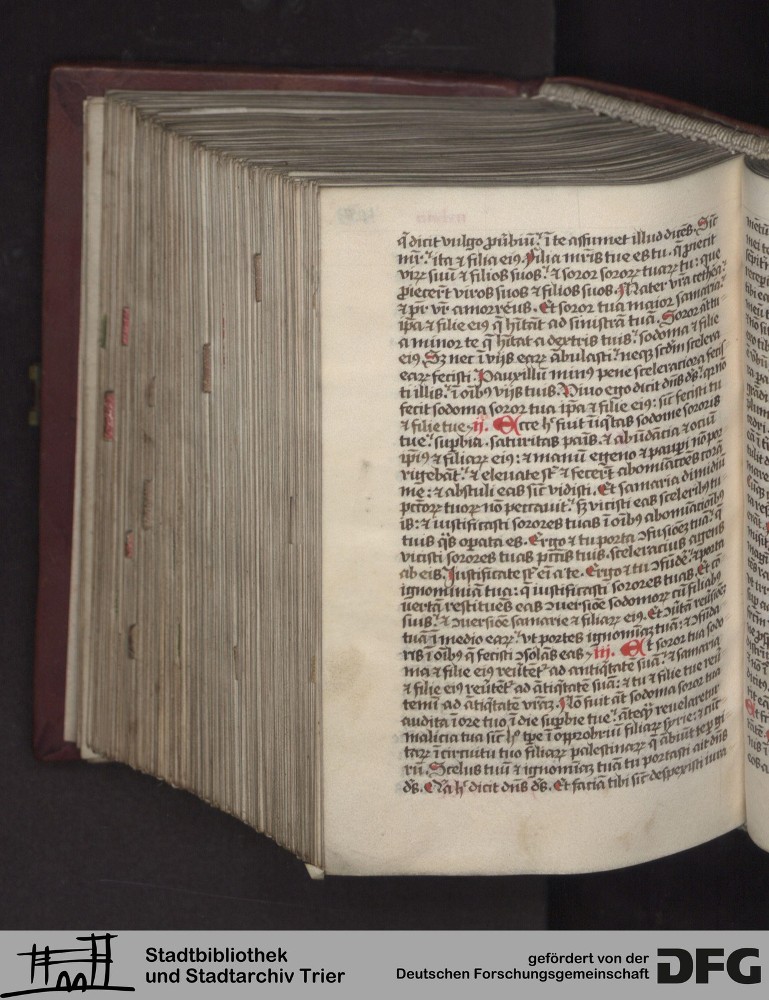 q̄ dicit vulgo ꝓūbiū. ī te assumet illud dicēs. Sic̄
mr̄. ita ⁊ filia eiꝰ. Filia mr̄is tue es tu. q̄ ꝓiecit
virꝝ suū ⁊ filios suos. ⁊ soror sororꝝ tuarꝝ tu: que
ꝓiecer̄t viros suos ⁊ filios suos. Mater vr̄a cethea.
⁊ pr̄ vr̄ amorreus. Et soror tua maior samaria.
ip̄a ⁊ filie eiꝰ q̄ hītāt ad sinistrā tuā. Soror aūt tua
a minor te q̄ hītat a dextris tuis. sodoma ⁊ filie
eiꝰ. Sꝫ nec ī vijs earꝝ ābulasti. neqꝫ scd̄m scelera
earꝝ fecisti. Pauxillū minꝰ pene sceleraciora fecis
ti illis. ī oībꝰ vijs tuis. Viuo ego dicit dn̄s ds̄. q: nō
fecit sodoma soror tua ip̄a ⁊ filie eiꝰ: sic̄ fecisti tu
⁊ filie tue. ij. Ecce h̄ fuit īiq̄tas sodome sororis
tue. suꝑbia. saturitas panis. ⁊ abūdācia ⁊ ociū
ip̄iꝰ ⁊ filiarꝝ eiꝰ: ⁊ manū egeno ⁊ pauꝑi nō por
rigebāt. ⁊ eleuate st̄ ⁊ fecer̄t abomiacōes corā
me: ⁊ abstuli eas sic̄ vidisti. Et samaria dimidiū
pc̄torꝝ tuorꝝ nō peccauit. sꝫ vicisti eas sceleribꝰ tu
is: ⁊ iustificasti sorores tuas ī oībꝰ abomiacioībꝰ
tuis q̄s oꝑata es. Ergo ⁊ tu porta ꝯfusioēz tuā: q̄
vicisti sorores tuas pc̄tis tuis. sceleracius agens
ab eis. Justificate st̄ eī a te. Ergo ⁊ tu ꝯfūde. ⁊ porta
ignominiā tuā: q̄ iustificasti sorores tuas. Et cō
uertā restitues eas ꝯuersiōe sodomorꝝ cū filiabꝰ
suis. ⁊ ꝯuersiōe samarie ⁊ filiarꝝ eiꝰ. Et ꝯūtā reūsiōēꝫ
tuā ī medio earꝝ. vt portes ignomiāꝫ tuā: ⁊ ꝯfūda
ris ī oībꝰ q̄ fecisti ꝯsolās eas. iij. Et soror tua sodo
ma ⁊ filie eiꝰ reūtēt̄ ad antiq̄tatē suā. ⁊ samaria
⁊ filie eiꝰ reūtēt̄ ad ātiq̄tatē suā: ⁊ tu ⁊ filie tue reū
temī ad ātiq̄tatē vrāꝫ. Nō fuit āt sodoma soror tua
audita ī ore tuo ī die suꝑbie tue. āteqꝫ reuelaret̄
malicia tua sic̄ h̄ tꝑe ī opprobriū filiarꝝ syrie. ⁊ cūc
tarꝝ ī circuitu tuo filiarꝝ palestinarꝝ q̄ ābiūt te ꝑ gi
rū. Scelus tuū ⁊ ignomiāꝫ tuā tu portasti ait dn̄s
ds̄. Q̄a h̄ dicit dn̄s ds̄. Et faciā tibi sic̄ despexisti iura
Stadtbibliothek
und Stadtarchiv Trier
gefördert von der
Deutschen Forschungsgemeinschaft
DFG